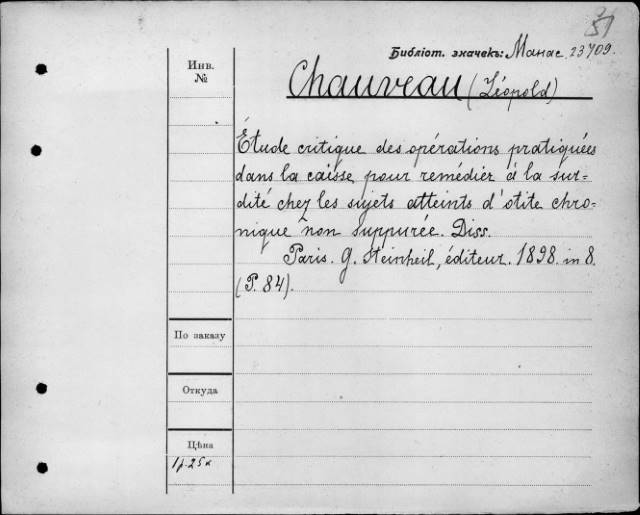 51
Библіот. значекъ: Манас 23709.
Инв.
№
Chauveau (Léopold)
Étude critique des opérations pratiquées
dans la caisse pour remédier à la sur-
dité chez les sujets atteints d'otite chro-
nique non suppurée. Diss.
Paris. G. Steinheil, éditeur. 1898. in 8.
(P. 84).
По заказу
Откуда
Цѣна
1р. 25к